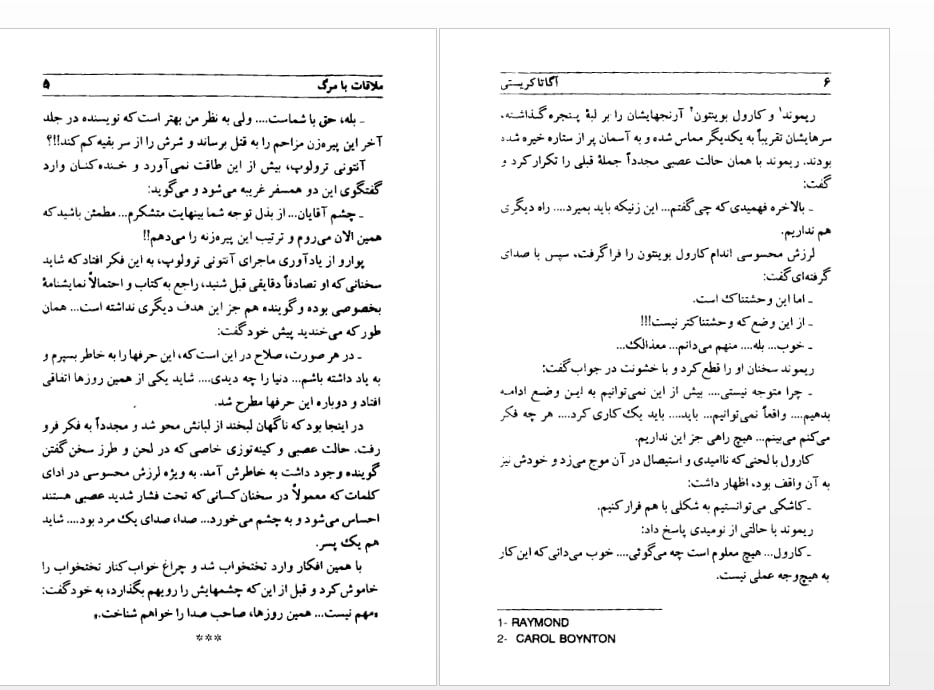 ملاقات با مرگ ۵
ـ بله، حق با شماست.... ولی به نظر من بهتر است که نویسنده در جلد
آخر این پیره‌زن مزاحم را به قتل برساند و شرش را از سر بقیه کم کند!!!؟
آنتونی ترولوپ، بیش از این طاقت نمی‌آورد و خنده‌کنان وارد
گفتگوی این دو همسفر غریبه می‌شود و می‌گوید:
ـ چشم آقایان... از بذل توجه شما بینهایت متشکرم... مطمئن باشید که
همین الان می‌روم و ترتیب این پیره‌زنه را می‌دهم!!
پوارو از یادآوری ماجرای آنتونی ترولوپ، به این فکر افتاد که شاید
سخنانی که او تصادفاً دقایقی قبل شنید، راجع به کتاب و احتمالاً نمایشنامهٔ
بخصوصی بوده و گوینده هم جز این هدف دیگری نداشته است... همان
طور که می‌خندید پیش خود گفت:
ـ در هر صورت، صلاح در این است که، این حرفها را به خاطر بسپرم و
به یاد داشته باشم... دنیا را چه دیدی.... شاید یکی از همین روزها اتفاقی
افتاد و دوباره این حرفها مطرح شد.
در اینجا بود که ناگهان لبخند از لبانش محو شد و مجدداً به فکر فرو
رفت. حالت عصبی و کینه‌توزی خاصی که در لحن و طرز سخن گفتن
گوینده وجود داشت به خاطرش آمد. به ویژه لرزش محسوسی در ادای
کلمات که معمولاً در سخنان کسانی که تحت فشار شدید عصبی هستند
احساس می‌شود و به چشم می‌خورد... صدا، صدای یک مرد بود.... شاید
هم یک پسر.
با همین افکار وارد تختخواب شد و چراغ خواب کنار تختخواب را
خاموش کرد و قبل از این که چشمهایش را رویهم بگذارد، به خود گفت:
«مهم نیست... همین روزها، صاحب صدا را خواهم شناخت.»
***
۶ آگاتا کریستی
ریموند¹ و کارول بوینتون² آرنجهایشان را بر لبهٔ پنجره گذاشته،
سرهایشان تقریباً به یکدیگر مماس شده و به آسمان پر از ستاره خیره شده
بودند. ریموند با همان حالت عصبی مجدداً جملهٔ قبلی را تکرار کرد و
گفت:
ـ بالاخره فهمیدی که چی گفتم... این زنیکه باید بمیرد.... راه دیگری
هم نداریم.
لرزش محسوسی اندام کارول بوینتون را فرا گرفت، سپس با صدای
گرفته‌ای گفت:
ـ اما این وحشتناک است.
ـ از این وضع که وحشتناکتر نیست!!!
ـ خوب... بله.... منهم می‌دانم... معذالک...
ریموند سخنان او را قطع کرد و با خشونت در جواب گفت:
ـ چرا متوجه نیستی.... بیش از این نمی‌توانیم به این وضع ادامه
بدهیم.... واقعاً نمی‌توانیم... باید.... باید یک کاری کرد.... هر چه فکر
می‌کنم می‌بینم... هیچ راهی جز این نداریم.
کارول با لحنی که ناامیدی و استیصال در آن موج می‌زد و خودش نیز
به آن واقف بود، اظهار داشت:
ـ کاشکی می‌توانستیم به شکلی با هم فرار کنیم.
ریموند با حالتی از نومیدی پاسخ داد:
ـ کارول... هیچ معلوم است چه می‌گوئی.... خوب می‌دانی که این کار
به هیچوجه عملی نیست.
1- RAYMOND
2- CAROL BOYNTON